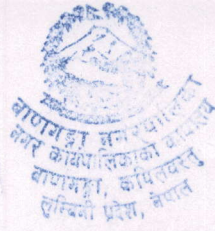 बाणगङ्गा नगरपालिका
नगर कार्यपालिकाको कार्यालय
बाणगङ्गा, कपिलवस्तु
लुम्बिनी प्रदेश, नेपाल